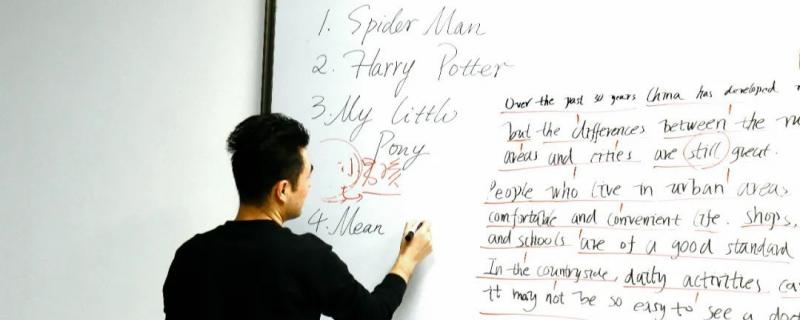 1. Spider Man
2. Harry Potter
3. My little
Pony
小男孩
4. Mean
Over the past 30 years China has developed
but the differences between the
areas and cities are still great.
People who live in urban areas
comfortable and convenient life. shops,
and schools are of a good standard
In the countryside, daily activities
it may not be so easy to see a